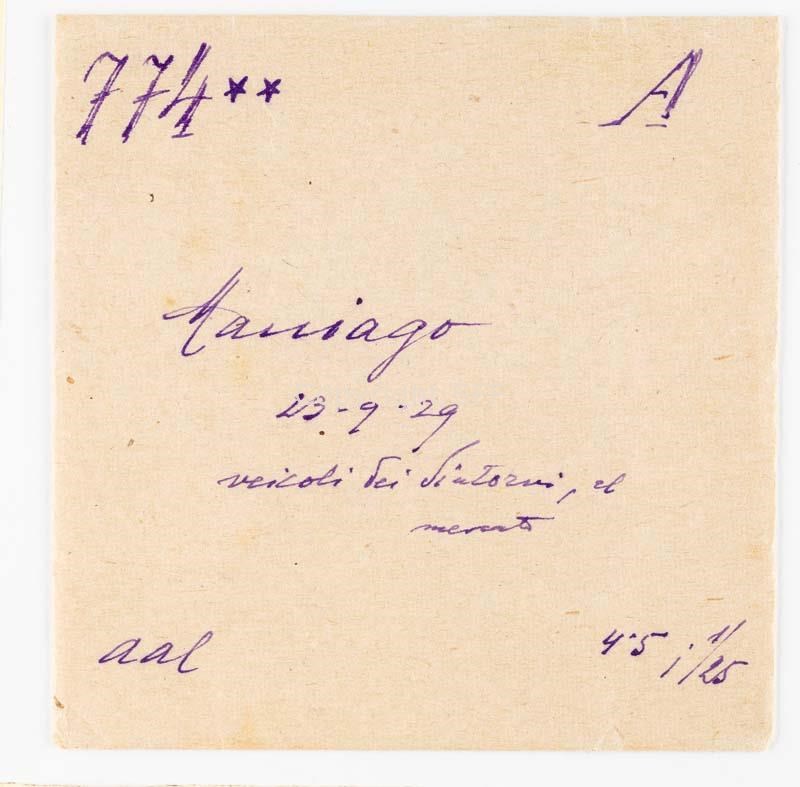 774** A
Maniago
23-9-29
veicoli dei dintorni, al
mercato
aal 4.5 ; 1/25